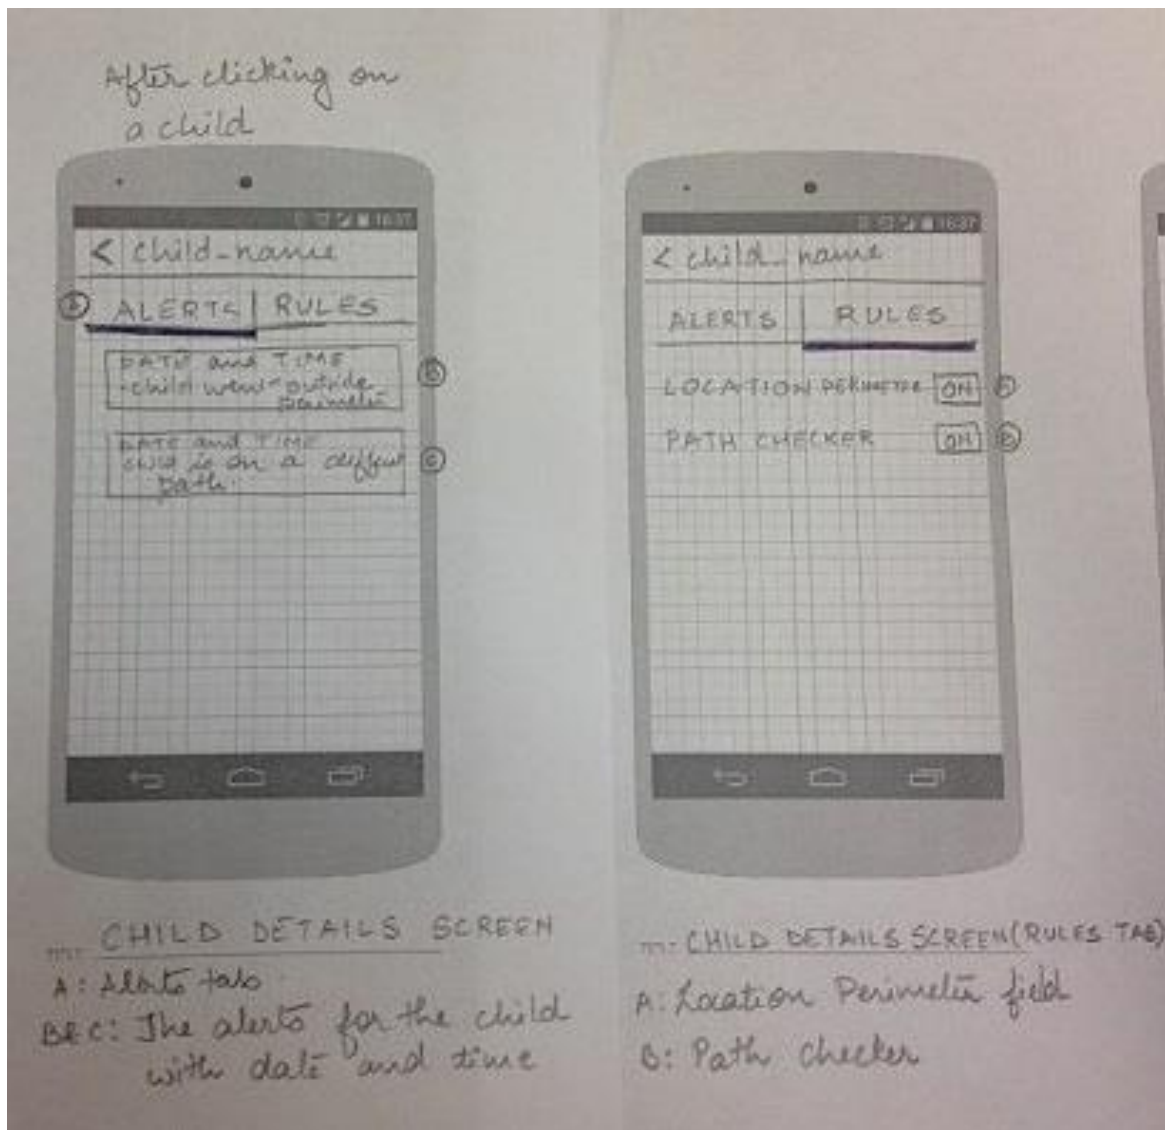 After clicking on
a child
16:37
< child-name
A ALERTS | RULES
DATE and TIME
-child went outside
perimeter
B
DATE and TIME
child is on a
path.
C
CHILD DETAILS SCREEN
A: Alerts tab
B&C: The alerts for the child
with date and time
16:37
< child-name
ALERTS | RULES
LOCATION PERIMETER ON A
PATH CHECKER ON B
CHILD DETAILS SCREEN (RULES TAB)
A: Location Perimeter field
B: Path checker